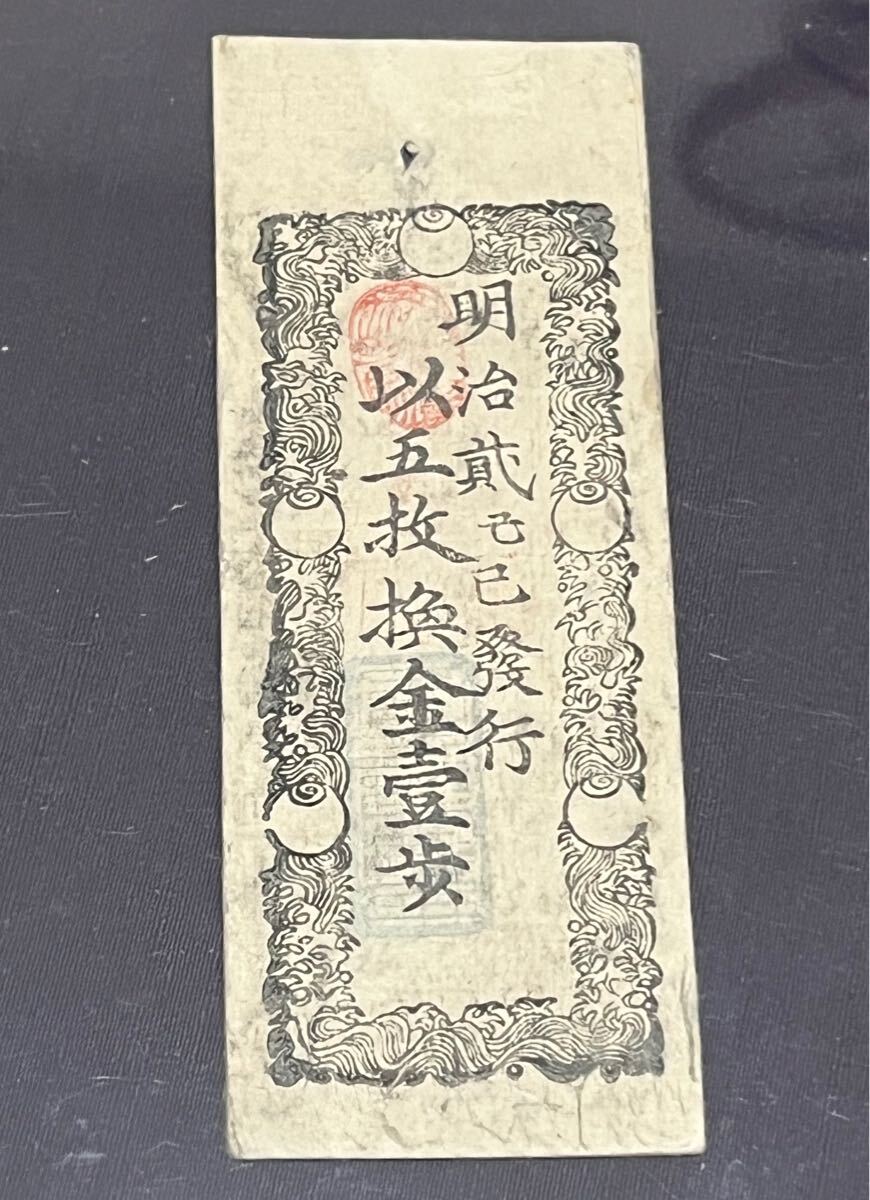 明治貳己巳發行
以五枚換金壹歩